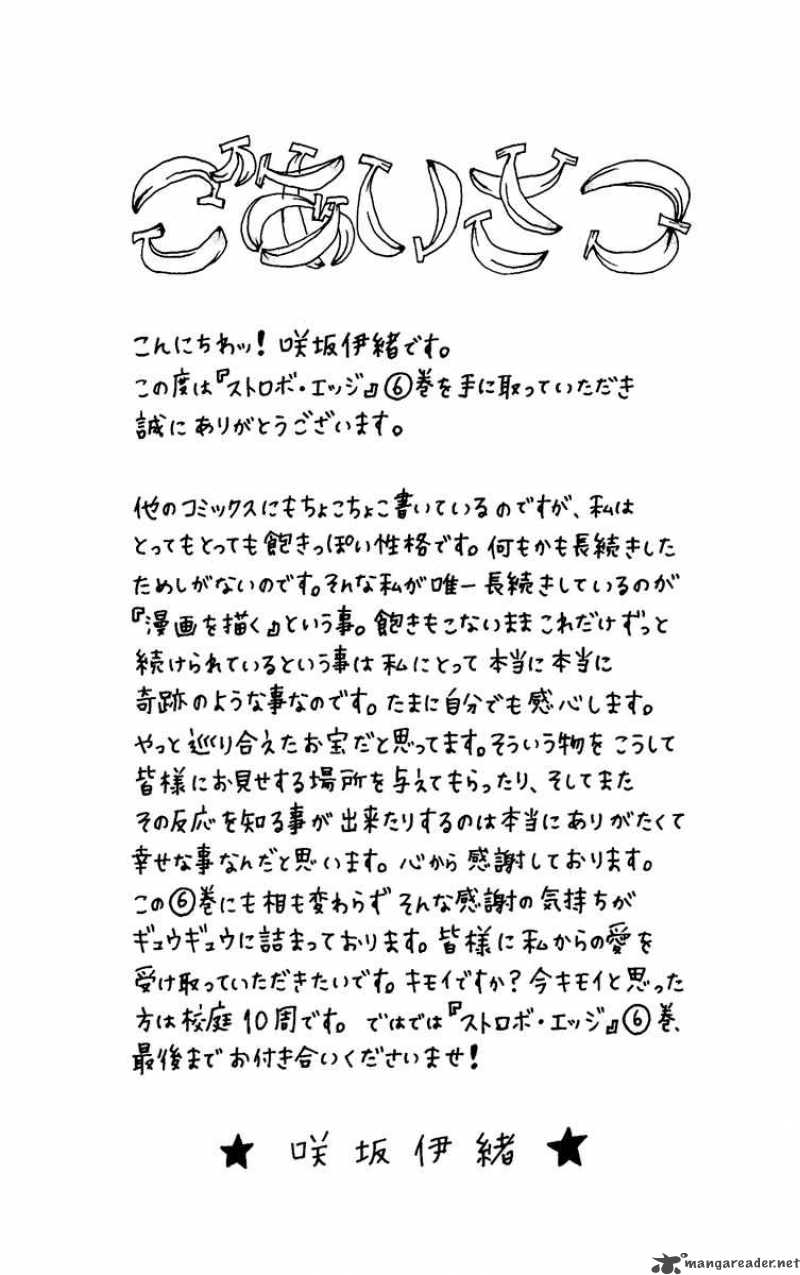 ごあいさつ
こんにちわッ！咲坂伊緒です。
この度は『ストロボ・エッジ』⑥巻を手に取っていただき
誠にありがとうございます。
他のコミックスにもちょこちょこ書いているのですが、私は
とってもとっても飽きっぽい性格です。何もかも長続きした
ためしがないのです。そんな私が唯一長続きしているのが
『漫画を描く』という事。飽きもこないままこれだけずっと
続けられているという事は私にとって本当に本当に
奇跡のような事なのです。たまに自分でも感心します。
やっと巡り合えたお宝だと思ってます。そういう物をこうして
皆様にお見せする場所を与えてもらったり、そしてまた
その反応を知る事が出来たりするのは本当にありがたくて
幸せな事なんだと思います。心から感謝しております。
この⑥巻にも相も変わらずそんな感謝の気持ちが
ギュウギュウに詰まっております。皆様に私からの愛を
受け取っていただきたいです。キモイですか？今キモイと思った
方は校庭10周です。ではでは『ストロボ・エッジ』⑥巻、
最後までお付き合いくださいませ！
★ 咲坂伊緒 ★
mangareader.net